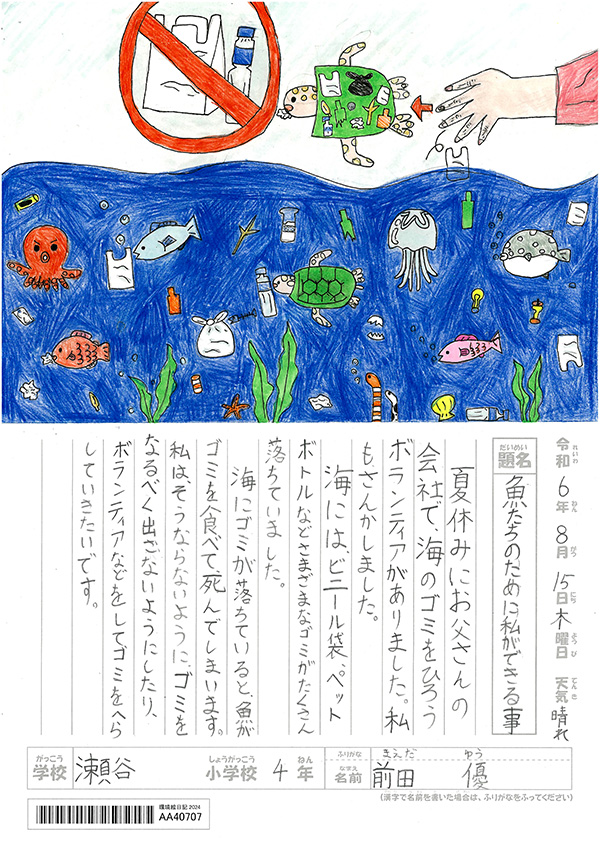 令和6年8月15日木曜日 天気 晴れ
れいわ ねん がつ にち ようび てんき
だいめい
題名 魚たちのために私ができる事
夏休みにお父さんの
会社で、海のゴミをひろう
ボランティアがありました。私
もさんかしました。
海には、ビニール袋、ペット
ボトルなどさまざまなゴミがたくさん
落ちていました。
海にゴミが落ちていると、魚が
ゴミを食べて、死んでしまいます。
私は、そうならないように、ゴミを
なるべく出ざないようにしたり、
ボランティアなどをしてゴミをへら
していきたいです。
がっこう しょうがっこう ねん ふりがな まえだ ゆう
学校 瀬谷 小学校 4年 なまえ 名前 前田 優
(漢字で名前を書いた場合は、ふりがなをふってください)
環境絵日記 2024
AA40707